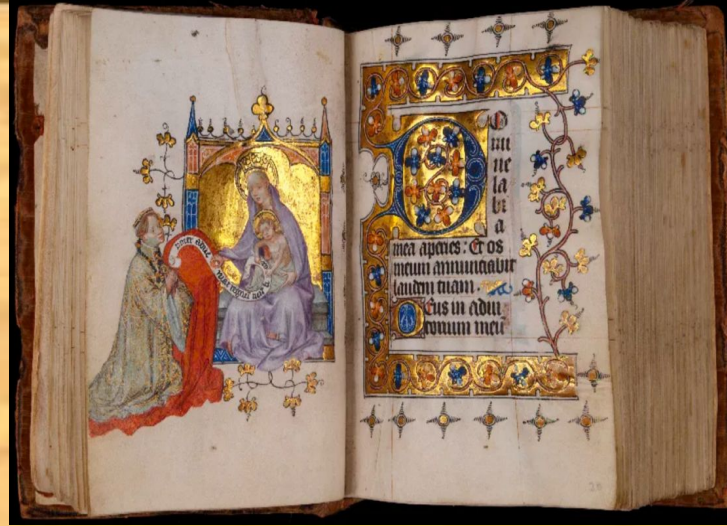 Domi
ne
la
bi
a
mea aperies: Et os
meum annunciabit
laudem tuam
Deus in adiu
torium meu
20